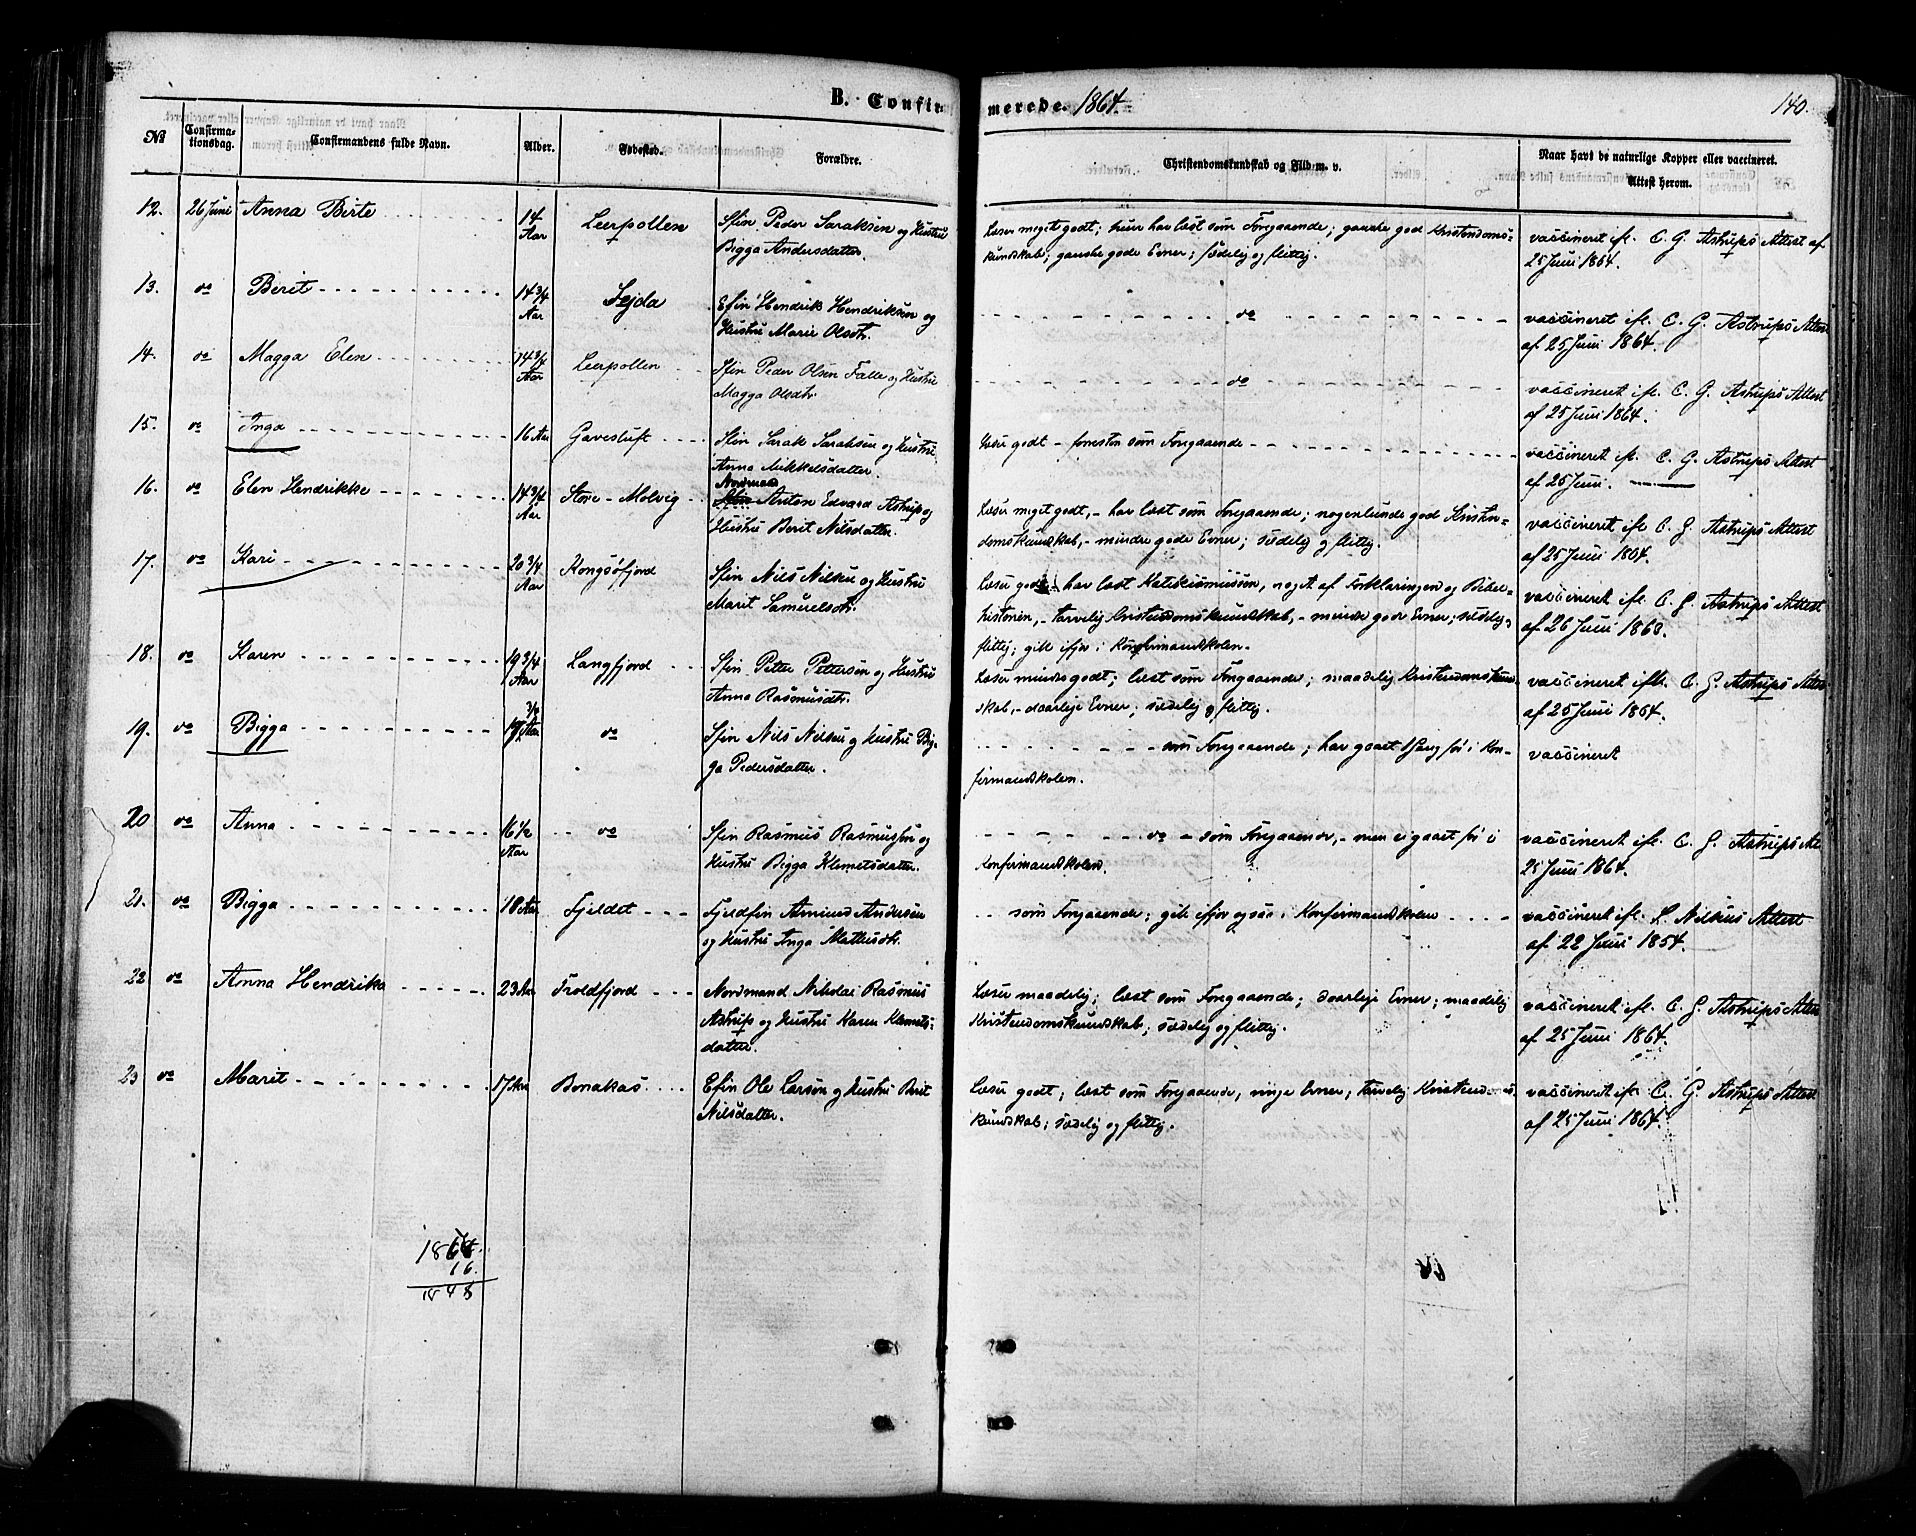 B. Confirmerede. 1864.
140.
No
Confirmationsdag.
Confirmandens fulde Navn.
Alder.
Fødested.
Forældre.
Christendomskundskab og Flid m. v.
Naar havt de naturlige Kopper eller vaccineret.
Attest herom.
12. 26 Juni Anna Birte 14 Aar Leerpollen
Sfin Peder Saraksen og Hustru
Bigga Andersdatter.
Læser meget godt; hun har læst som Foregaaende; ganske god Kristendoms-
kundskab; ganske gode Evner; sædelig og flittig.
vaccineret ifl. C. G. Astrups Attest af
25 Juni 1864.
13. do Berit 14 3/4 Aar Sejda
Efin Hendrik Hendriksen og
Hustru Marie Olsdtr.
do
vaccineret ifl. C. G. Astrups Attest
af 25 Juni 1864.
14. do Magga Elen 14 3/4 Aar Leerpollen
Sfin Peder Olsen Falle og Hustru
Magga Olsdtr.
do
vaccineret ifl. C. G. Astrups Attest
af 25 Juni 1864.
15. do Inga 16 Aar Gavesluft
Sfin Sarak Saraksen og Hustru
Anna Mikkelsdatter.
Læser godt - forresten som Foregaaende
vaccineret ifl. C. G. Astrups Attest
af 25 Juni.
16. do Elen Hendrikke 14 3/4 Aar Store-Molvig
Nordmand
Anton Edvard Astrup og
Hustru Berit Nilsdatter.
Læser meget godt, - har læst som Foregaaende; nogenlunde god Kristen-
domskundskab, - mindre gode Evner; sædelig og flittig.
vaccineret ifl. C. G. Astrups Attest
af 25 Juni 1864.
17. do Kari 20 3/4 Aar Kongsøfjord
Sfin Nils Nilsen og Hustru
Marit Samuelsdtr.
Læser godt - har læst Katekismussen, noget af Forklaringen og Bibel-
historien, - tarvelig Kristendomskundskab, - mindre gode Evner; sædelig
flittig; gik ifjor i Konfirmandskolen.
vaccineret ifl. C. G. Astrups Attest
af 26 Juni 1863.
18. do Karen 19 3/4 Aar Langfjord
Sfin Petter Pettersen og Hustru
Anna Rasmusdtr.
Læser mindre godt; læst som Foregaaende; maadelig Kristendomskund-
skab, - daarlige Evner; sædelig og flittig.
vaccineret ifl. C. G. Astrups Attest
af 25 Juni 1864.
19. do Bigga Aar do
Sfin Nils Nilsen og Hustru Big-
ga Pedersdatter.
som Foregaaende; har gaaet 1 Gang før i Kon-
firmandskolen.
vaccineret
20 do Anna 16 1/2 Aar do
Sfin Rasmus Rasmussen og
Hustru Bigga Klemetsdatter.
do - som Foregaaende, - men ei gaaet før i
Konfirmandskolen.
vaccineret ifl. C. G. Astrups At
25 Juni 1864.
21. do Bigga 18 Aar Fjeldet
Fjeldfin Amund Andersen
og Hustru Inga Mathisdtr.
som Foregaaende; gik ifjor ogsaa i Konfirmandskolen
vaccineret ifl. Attest
af 22 Juni 1854.
22 do Anna Hendrika 23 Aar Troldfjord
Nordmand Nikolai Rasmus
Astrup og Hustru Karen Klemets-
datter.
Læser maadelig; læst som Foregaaende; daarlige Evner; maadelig
Kristendomskundskab; sædelig og flittig.
vaccineret ifl. C. G. Astrups Attest
af 25 Juni 1864.
23 do Marit 17 Aar Bonakas
Efin Ole Larsen og Hustru Berit
Nilsdatter.
Læser godt; læst som Foregaaende, ringe Evner, tarvelig Kristendoms
kundskab; sædelig og flittig.
vaccineret ifl. C. G. Astrups Attest
af 25 Juni 1864.
1864.
16.
1848